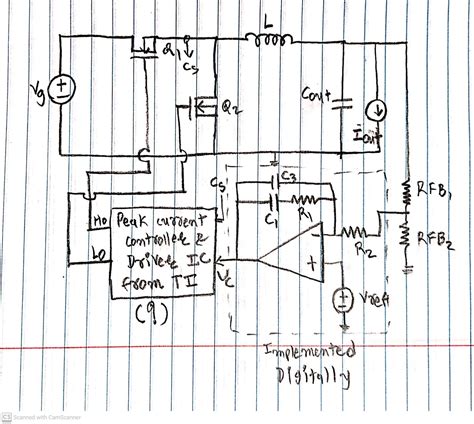 L
Q1
CS
Vg
Q2
Cout
Iout
RFB1
RFB2
C3
C1
R1
R2
CS
HO
LO
Peak current
controller &
Driver IC
from TI
(9)
VC
−
+
Vref
Implemented
Digitally
CS Scanned with CamScanner